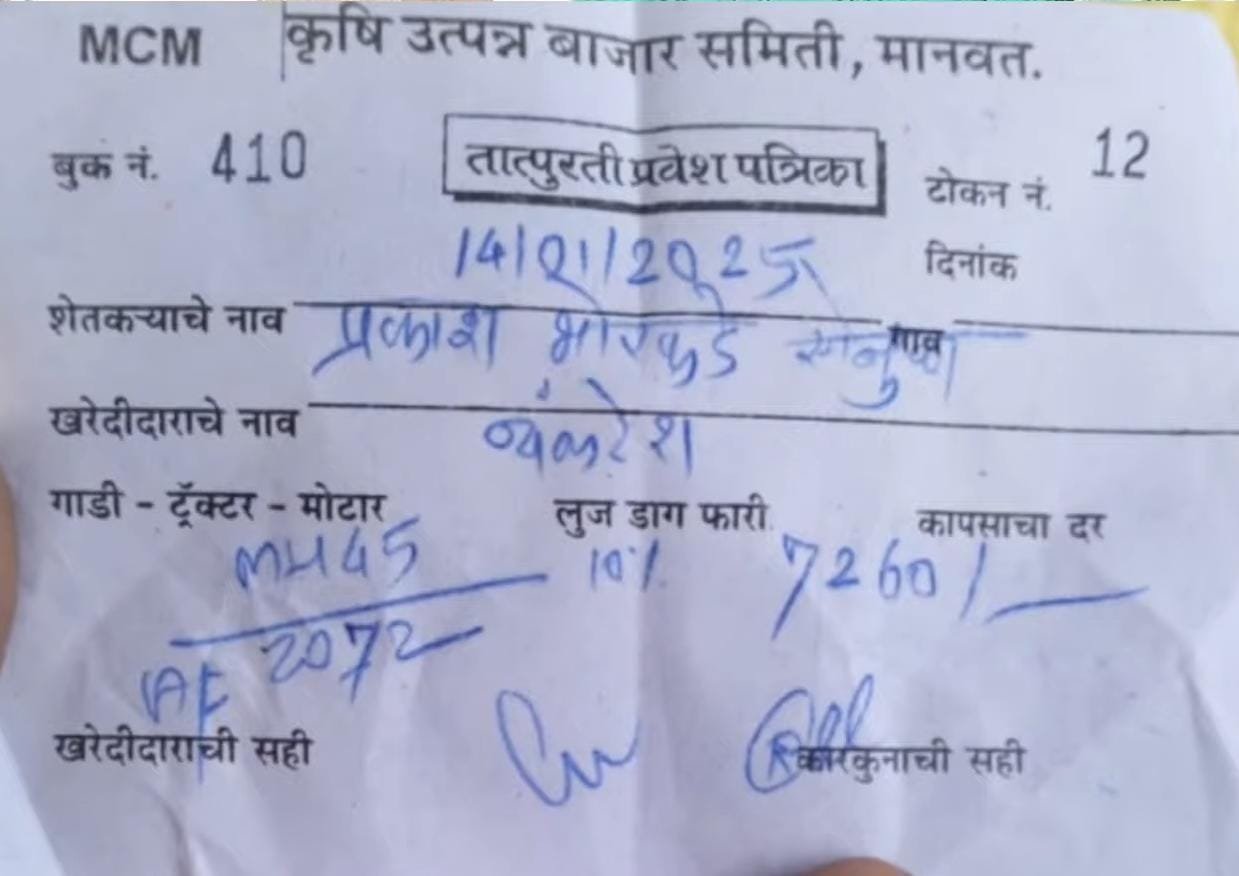 MCM कृषि उत्पन्न बाजार समिती, मानवत.
बुक नं. 410 तात्पुरती प्रवेश पत्रिका टोकन नं. 12
14/01/2025 दिनांक
शेतकऱ्याचे नाव प्रकाश गाव
खरेदीदाराचे नाव व्यंकटेश
गाडी - ट्रॅक्टर - मोटार लुज डाग फारी कापसाचा दर
MH45 10% 7260/
AF 2072
खरेदीदाराची सही कारकुनाची सही